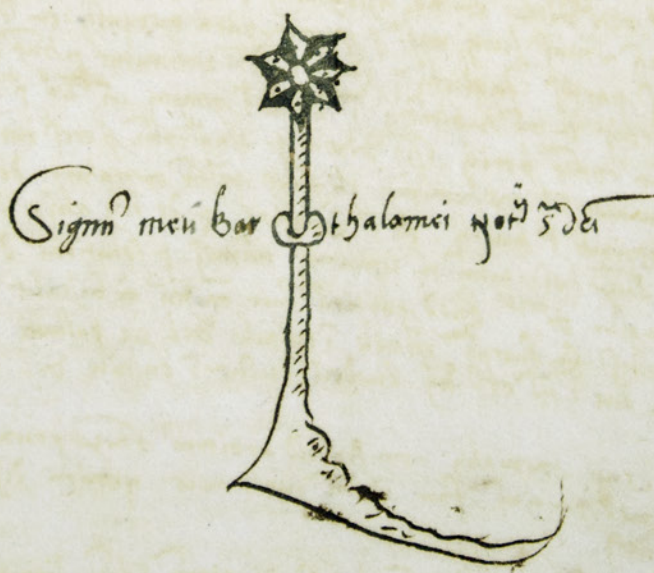 Signũ meũ bar thalamei notʳⁱʲ